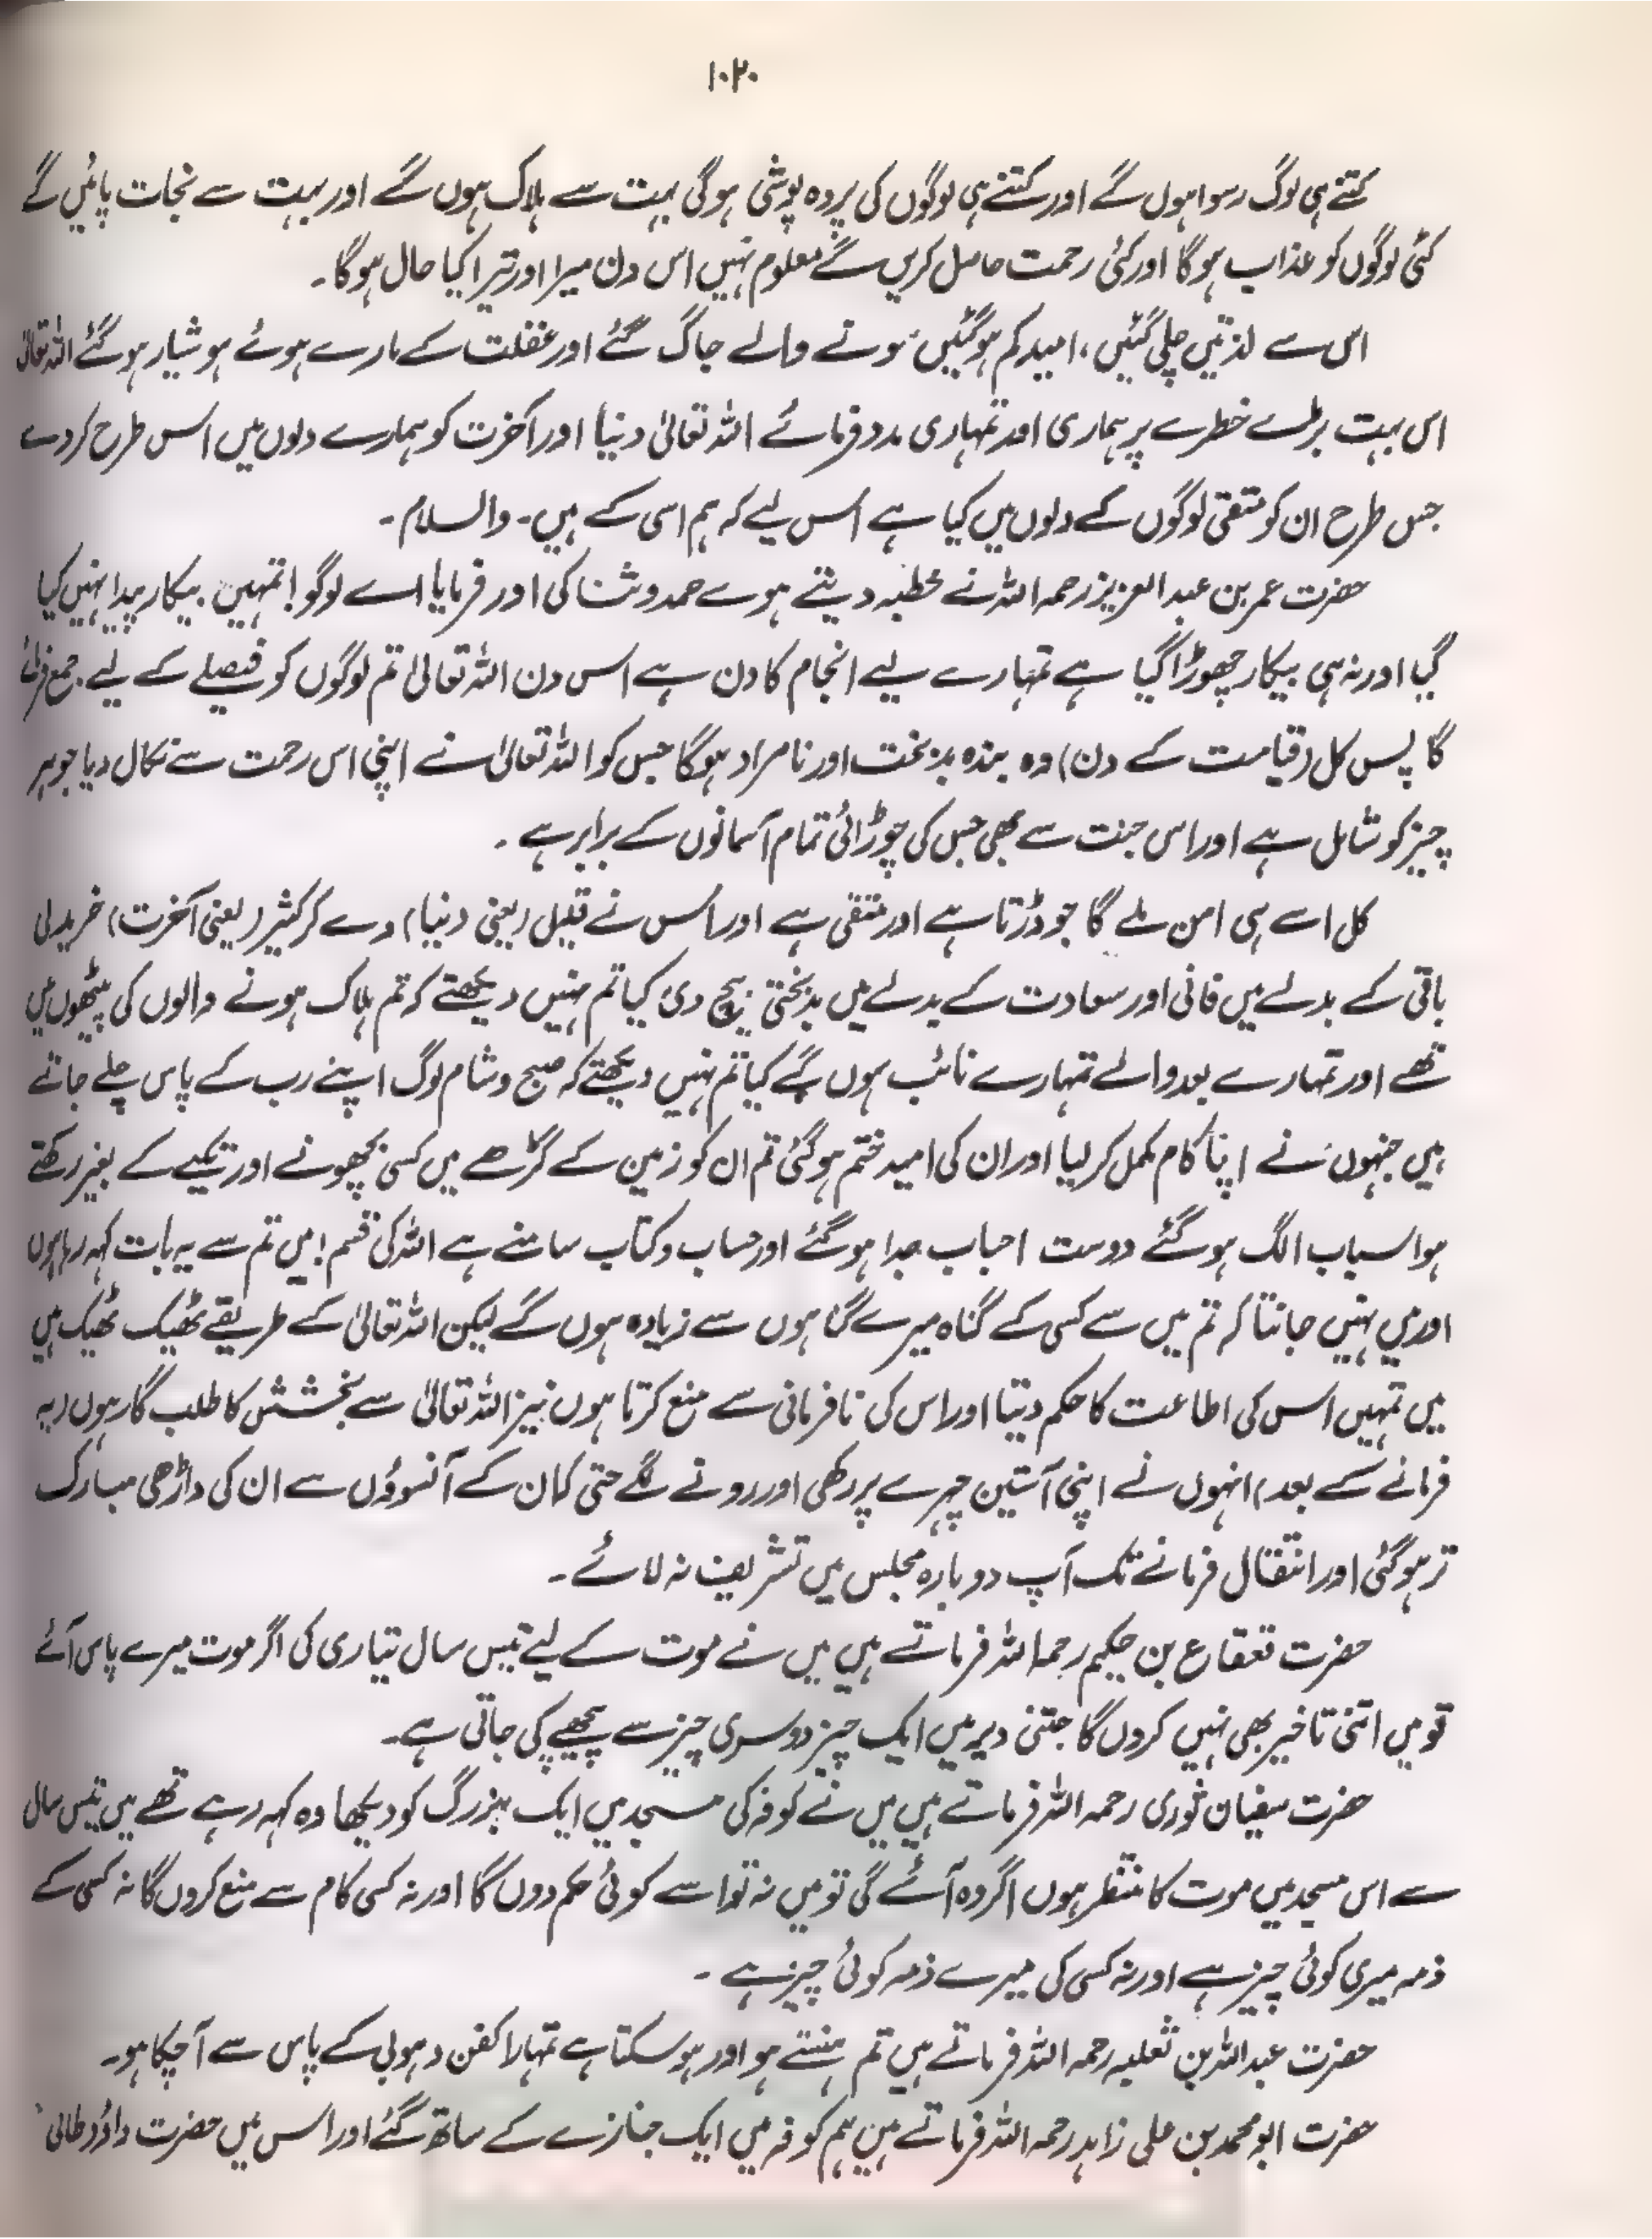 ۱۰۲۰
کتنے ہی لوگ رسوا ہوں گے اور کتنے ہی لوگوں کی پردہ پوشی ہوگی بہت سے ہلاک ہوں گے اور بہت سے نجات پائیں گے
کئی لوگوں کو عذاب ہوگا اور کئی رحمت حاصل کریں گے معلوم نہیں اس دن میرا اور تیرا کیا حال ہوگا۔
اس سے لذتیں چلی گئیں، امید کم ہوگئیں سوتے والے جاگ گئے اور غفلت کے مارے ہوئے ہوشیار ہو گئے اللہ تعالیٰ
اس بہت بڑے خطرے پر ہماری اور تمہاری مدد فرمائے اللہ تعالیٰ دنیا اور آخرت کو ہمارے دلوں میں اس طرح کردے
جس طرح ان کو متقی لوگوں کے دلوں میں کیا ہے اس لیے کہ ہم اسی کے ہیں۔ والسلام۔
حضرت عمر بن عبدالعزیز رحمہ اللہ نے خطبہ دیتے ہوے حمد و ثنا کی اور فرمایا اے لوگو! تمہیں بیکار پیدا نہیں کیا
گیا اور نہ ہی بیکار چھوڑا گیا ہے تمہارے لیے انجام کا دن ہے اس دن اللہ تعالیٰ تم لوگوں کو فیصلے کے لیے جمع فرمائے
گا پس کل (قیامت کے دن) وہ بندہ بدبخت اور نامراد ہوگا جس کو اللہ تعالیٰ نے اپنی اس رحمت سے نکال دیا جو ہر
چیز کو شامل ہے اور اس جنت سے بھی جس کی چوڑائی تمام آسمانوں کے برابر ہے۔
کل اسے ہی امن ملے گا جو ڈرتا ہے اور متقی ہے اور اس نے قلیل (یعنی دنیا) دے کر کثیر (یعنی آخرت) خرید لی
باقی کے بدلے میں فانی اور سعادت کے بدلے میں بدبختی بیچ دی کیا تم نہیں دیکھتے کہ تم ہلاک ہونے والوں کی پیٹھوں میں
تھے اور تمہارے بعد والے تمہارے نائب ہوں گے کیا تم نہیں دیکھتے کہ صبح و شام لوگ اپنے رب کے پاس چلے جاتے
ہیں جنہوں نے اپنا کام مکمل کر لیا اور ان کی امید ختم ہوگئی تم ان کو زمین کے گڑھے میں کسی بچھونے اور تکیے کے بغیر رکھتے
ہو اسباب الگ ہوگئے دوست احباب جدا ہوگئے اور حساب و کتاب سامنے ہے اللہ کی قسم! میں تم سے یہ بات کہہ رہا ہوں
اور میں نہیں جانتا کہ تم میں سے کسی کے گناہ میرے گناہوں سے زیادہ ہوں گے لیکن اللہ تعالیٰ کے طریقے ٹھیک ٹھیک ہیں
میں تمہیں اس کی اطاعت کا حکم دیتا اور اس کی نافرمانی سے منع کرتا ہوں نیز اللہ تعالیٰ سے بخشش کا طلب گار ہوں (یہ
فرمانے کے بعد) انہوں نے اپنی آستین چہرے پر رکھی اور رونے لگے حتی کہ ان کے آنسوؤں سے ان کی داڑھی مبارک
تر ہوگئی اور انتقال فرمانے تک آپ دوبارہ مجلس میں تشریف نہ لائے۔
حضرت قعقاع بن حکیم رحمہ اللہ فرماتے ہیں میں نے موت کے لیے تیس سال تیاری کی اگر موت میرے پاس آئے
تو میں اتنی تاخیر بھی نہیں کروں گا جتنی دیر میں ایک چیز دوسری چیز سے پیچھے کی جاتی ہے۔
حضرت سفیان ثوری رحمہ اللہ فرماتے ہیں میں نے کوفہ کی مسجد میں ایک بزرگ کو دیکھا وہ کہہ رہے تھے میں تیس سال
سے اس مسجد میں موت کا منتظر ہوں اگر وہ آئے گی تو میں نہ تو اسے کوئی حکم دوں گا اور نہ کسی کام سے منع کروں گا نہ کسی کے
ذمہ میری کوئی چیز ہے اور نہ کسی کی میرے ذمہ کوئی چیز ہے۔
حضرت عبداللہ بن ثعلبہ رحمہ اللہ فرماتے ہیں تم ہنستے ہو اور ہو سکتا ہے تمہارا کفن دہوبی کے پاس سے آچکا ہو۔
حضرت ابو محمد بن علی زاہد رحمہ اللہ فرماتے ہیں ہم کوفہ میں ایک جنازے کے ساتھ گئے اور اس میں حضرت داؤد طائی